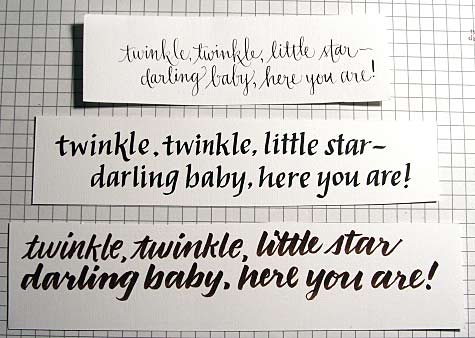 twinkle, twinkle, little star~
darling baby, here you are!
twinkle, twinkle, little star~
darling baby, here you are!
twinkle, twinkle, little star
darling baby, here you are!